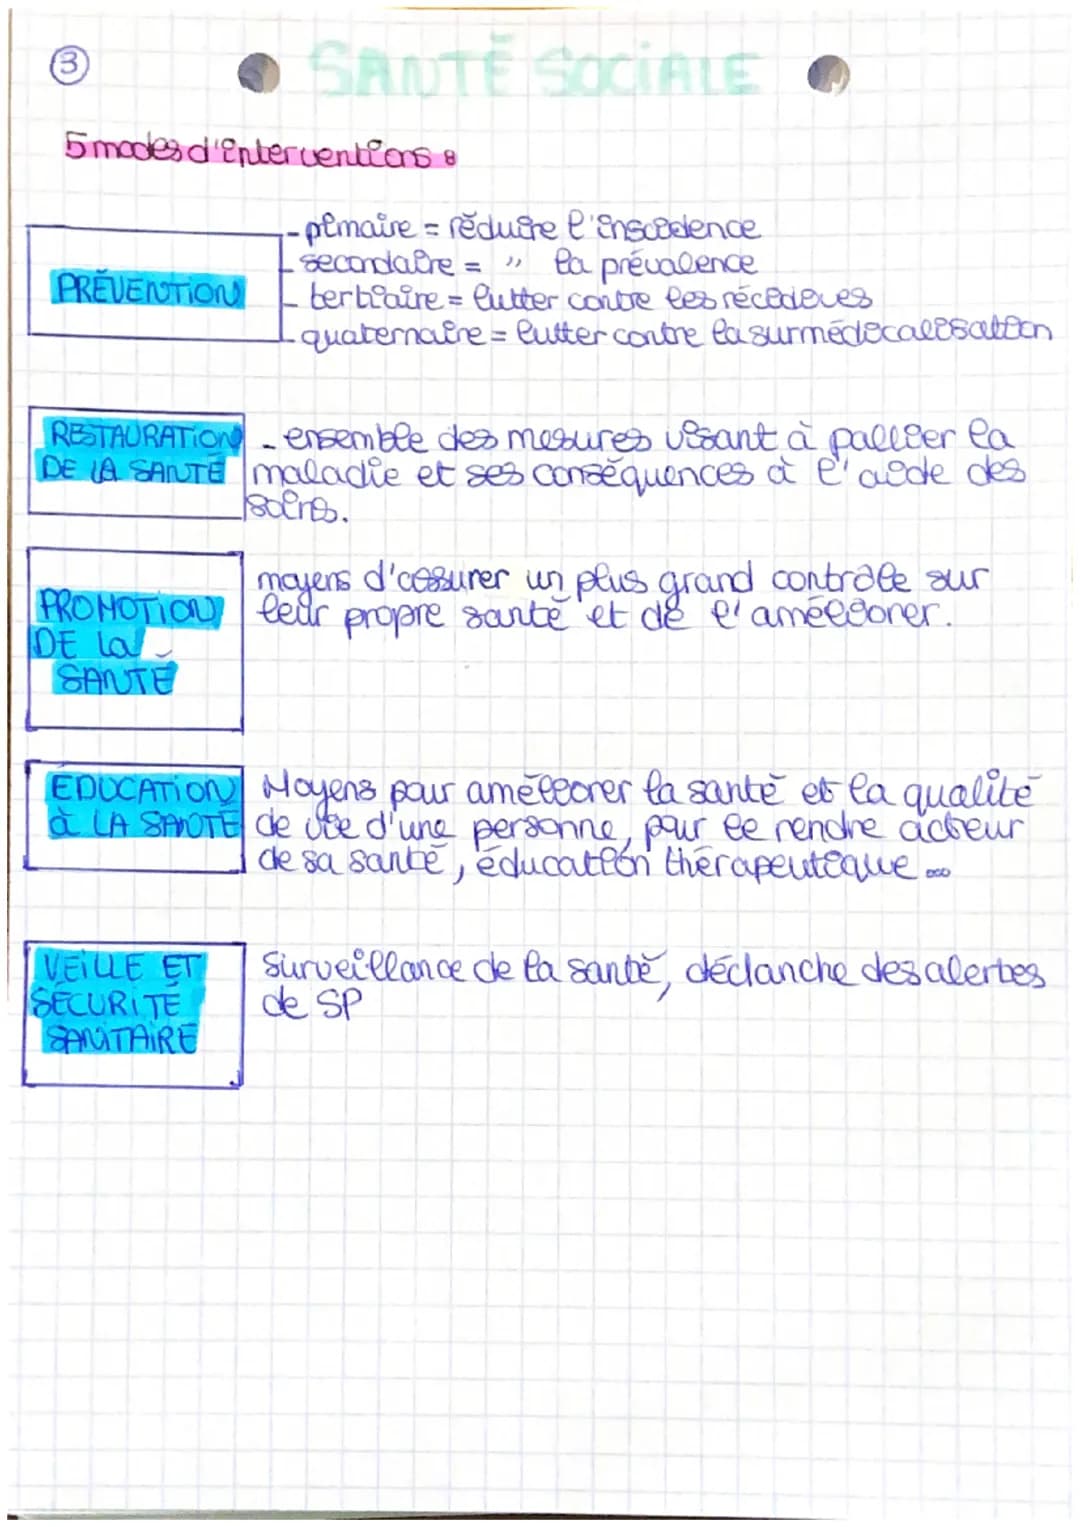 3
SANTÉ SOCIALE
5 modes d'interventions :
- pimaire = réduire l'inscidence
PRÉVENTION
- secondaire = " la prévalence
- tertiaire = lutter contre les récidives
- quaternaire = lutter contre la surmédicalisation
RESTAURATION
DE LA SANTÉ
- ensemble des mesures visant à pallier la
maladie et ses conséquences à l'aide des
soins.
PROMOTION
DE La
SANTÉ
moyens d'assurer un plus grand contrôle sur
leur propre santé et de l'améliorer.
ÉDUCATION
à LA SANTÉ
Moyens pour améliorer la santé et la qualité
de vie d'une personne, pour le rendre acteur
de sa santé, éducation thérapeutique ...
VEILLE ET
SÉCURITÉ
SANITAIRE
Surveillance de la santé, déclanche des alertes
de SP